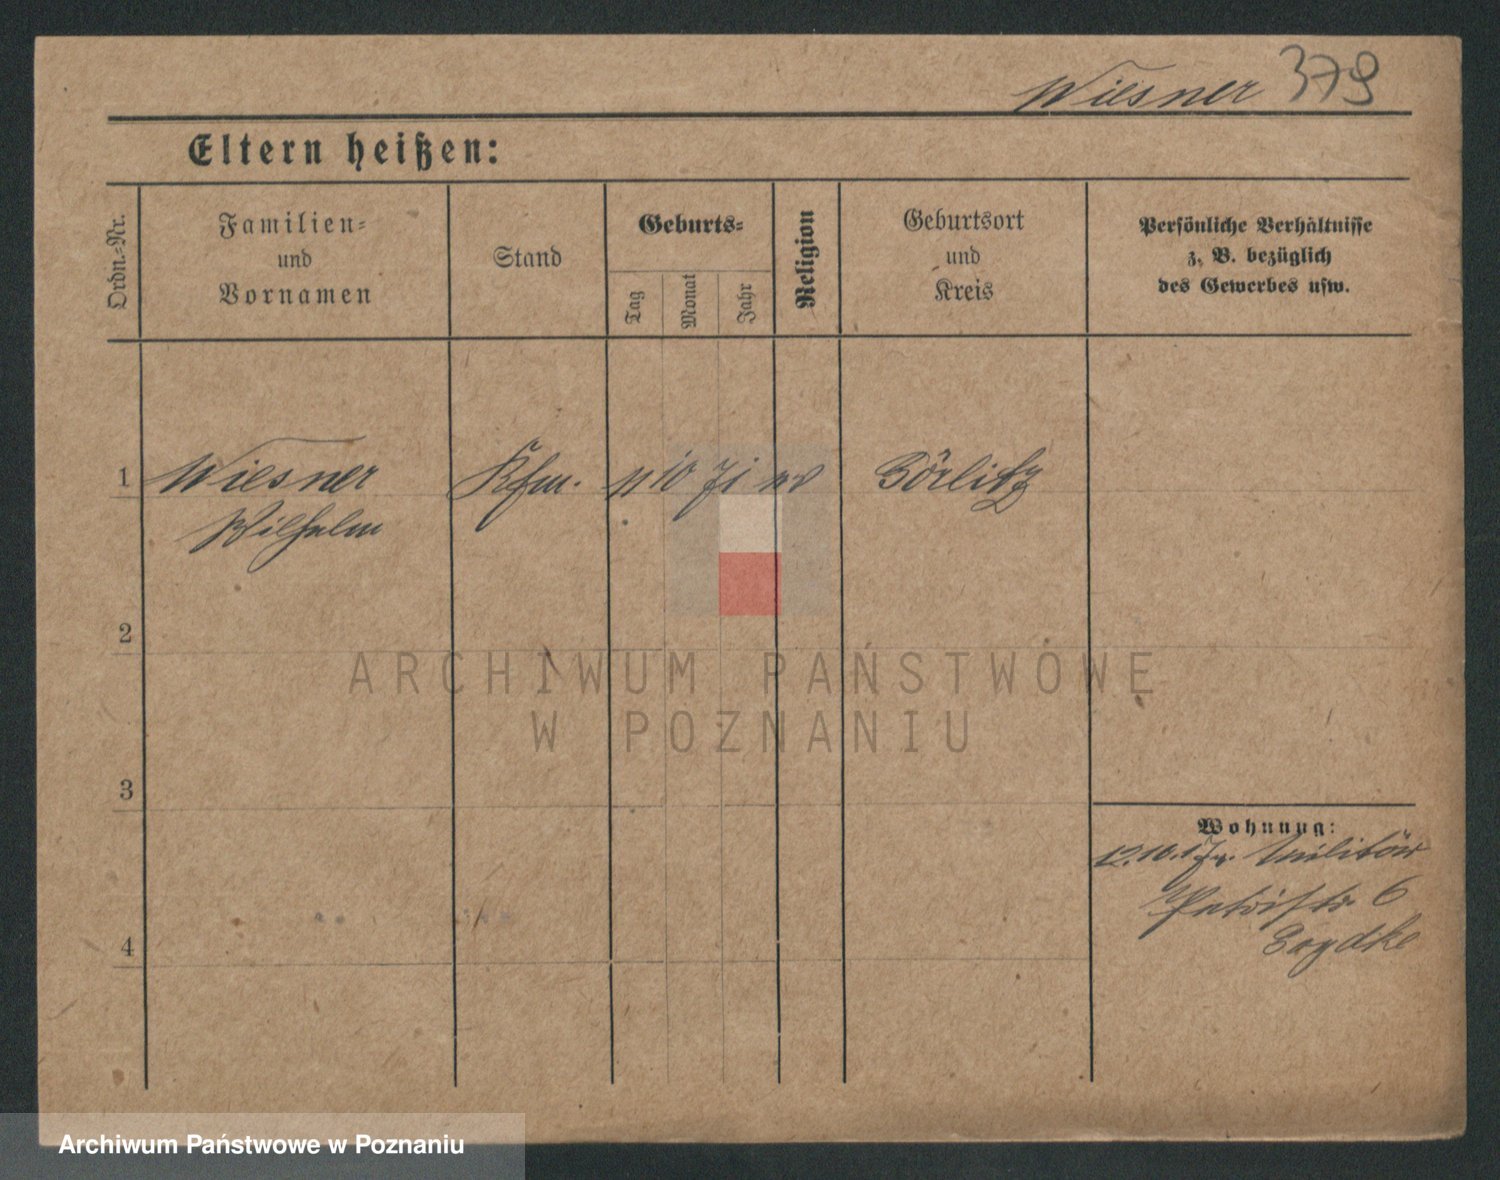 Wiesner 379
Eltern heißen:
Ordn.-Nr.
Familien-
und
Vornamen
Stand
Geburts-
Tag
Monat
Jahr
Religion
Geburtsort
und
Kreis
Persönliche Verhältnisse
z. B. bezüglich
des Gewerbes usw.
1
Wiesner Kfm. 11 10 71 ev Görlitz
Wilhelm
2
3
4
Wohnung:
12.10.17 Militär
Petristr 6
ARCHIWUM PAŃSTWOWE
W POZNANIU
Archiwum Państwowe w Poznaniu